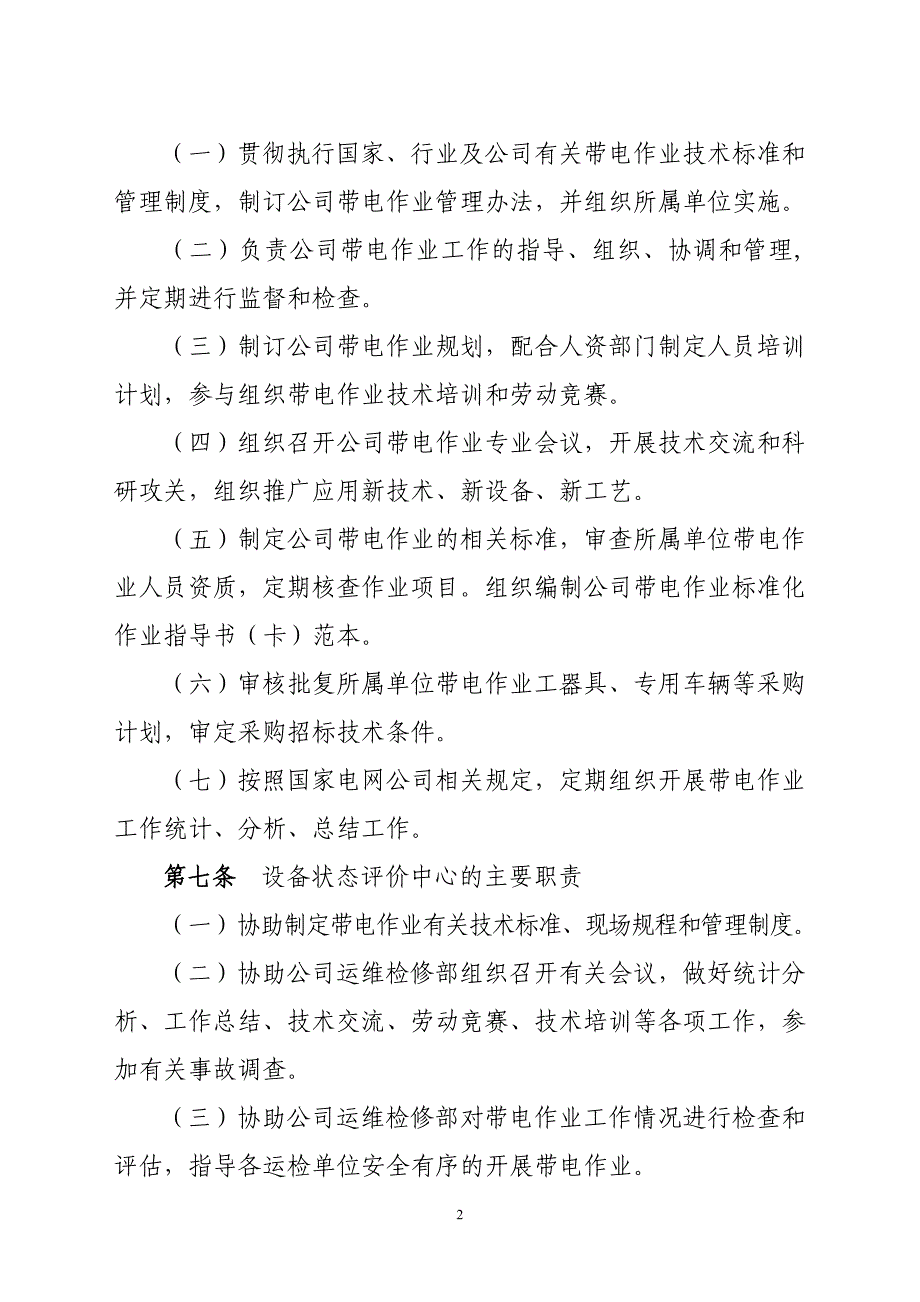 （一）贯彻执行国家、行业及公司有关带电作业技术标准和
管理制度，制订公司带电作业管理办法，并组织所属单位实施。
（二）负责公司带电作业工作的指导、组织、协调和管理，
并定期进行监督和检查。
（三）制订公司带电作业规划，配合人资部门制定人员培训
计划，参与组织带电作业技术培训和劳动竞赛。
（四）组织召开公司带电作业专业会议，开展技术交流和科
研攻关，组织推广应用新技术、新设备、新工艺。
（五）制定公司带电作业的相关标准，审查所属单位带电作
业人员资质，定期核查作业项目。组织编制公司带电作业标准化
作业指导书（卡）范本。
（六）审核批复所属单位带电作业工器具、专用车辆等采购
计划，审定采购招标技术条件。
（七）按照国家电网公司相关规定，定期组织开展带电作业
工作统计、分析、总结工作。
第七条　设备状态评价中心的主要职责
（一）协助制定带电作业有关技术标准、现场规程和管理制度。
（二）协助公司运维检修部组织召开有关会议，做好统计分
析、工作总结、技术交流、劳动竞赛、技术培训等各项工作，参
加有关事故调查。
（三）协助公司运维检修部对带电作业工作情况进行检查和
评估，指导各运检单位安全有序的开展带电作业。
2